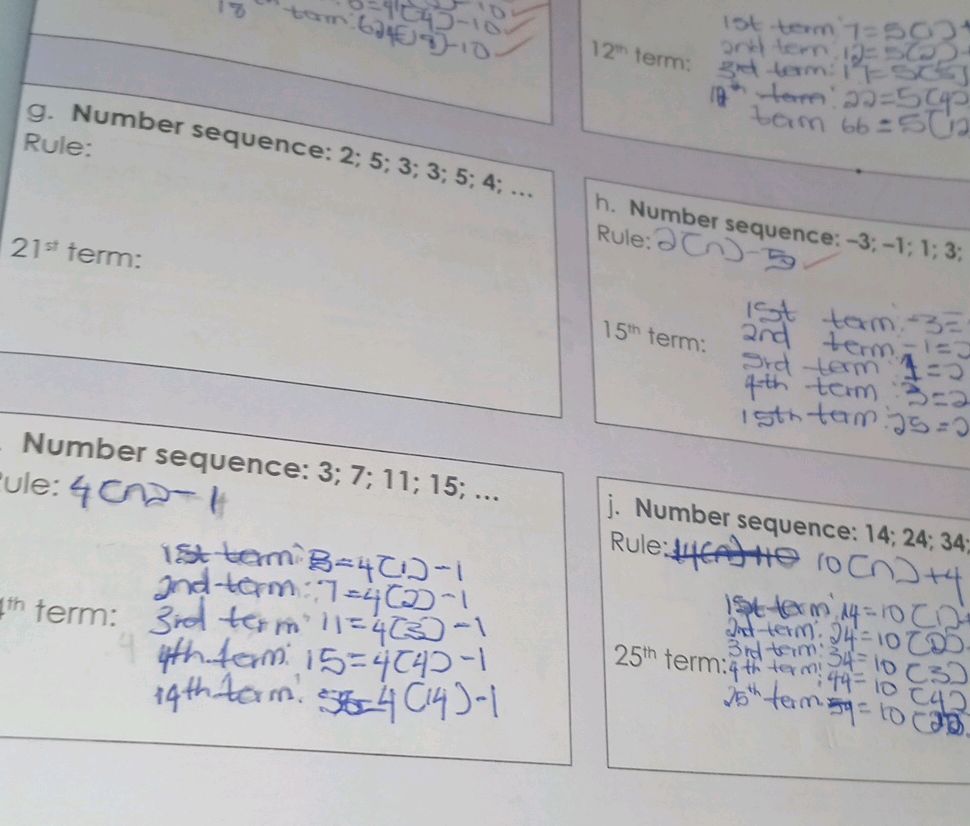 =4(4)-10
18th term: 624(18)-10
1st term: 7=5(1)
2nd term: 12=5(2)
12th term:
3rd term: 17=5(3)
12th term: 22=5(4)
term 66=5(12
g. Number sequence: 2; 5; 3; 3; 5; 4; ...
Rule:
21st term:
h. Number sequence: –3; –1; 1; 3;
Rule: 2(n)-5
15th term:
1st term: -3=
2nd term: -1=2
3rd term: 1=2
4th term: 3=2
15th term: 25=2
Number sequence: 3; 7; 11; 15; ...
ule: 4(n)-1
1st term: 3=4(1)-1
2nd term: 7=4(2)-1
th term:
3rd term: 11=4(3)-1
4th term: 15=4(4)-1
14th term: 4(14)-1
j. Number sequence: 14; 24; 34;
Rule: 14(n)+10 10(n)+4
1st term: 14=10(1)
2nd term: 24=10(2)
3rd term: 34=10(3)
25th term:
4th term: 44=10(4)
25th term 59=10(